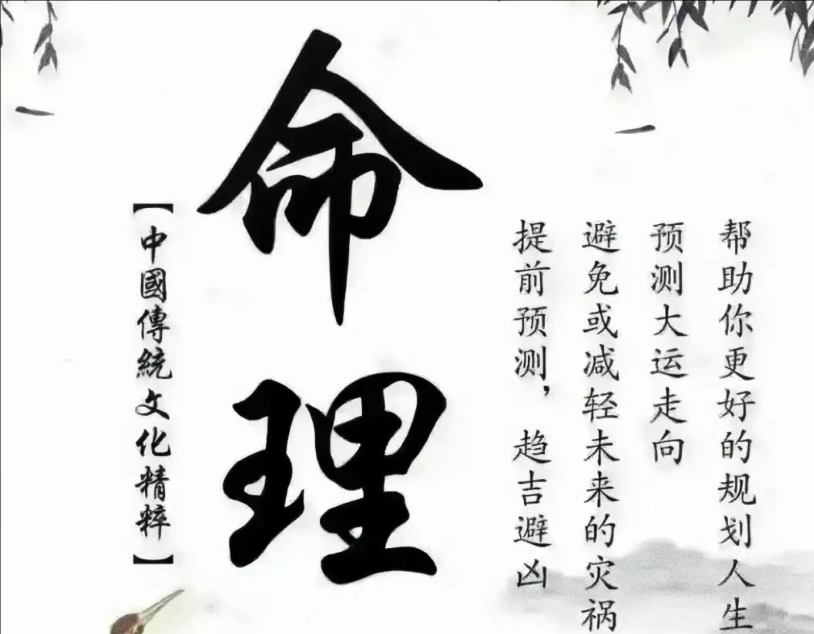 帮助你更好的规划人生
预测大运走向
避免或减轻未来的灾祸
提前预测，趋吉避凶
命理
【中國傳統文化精粹】